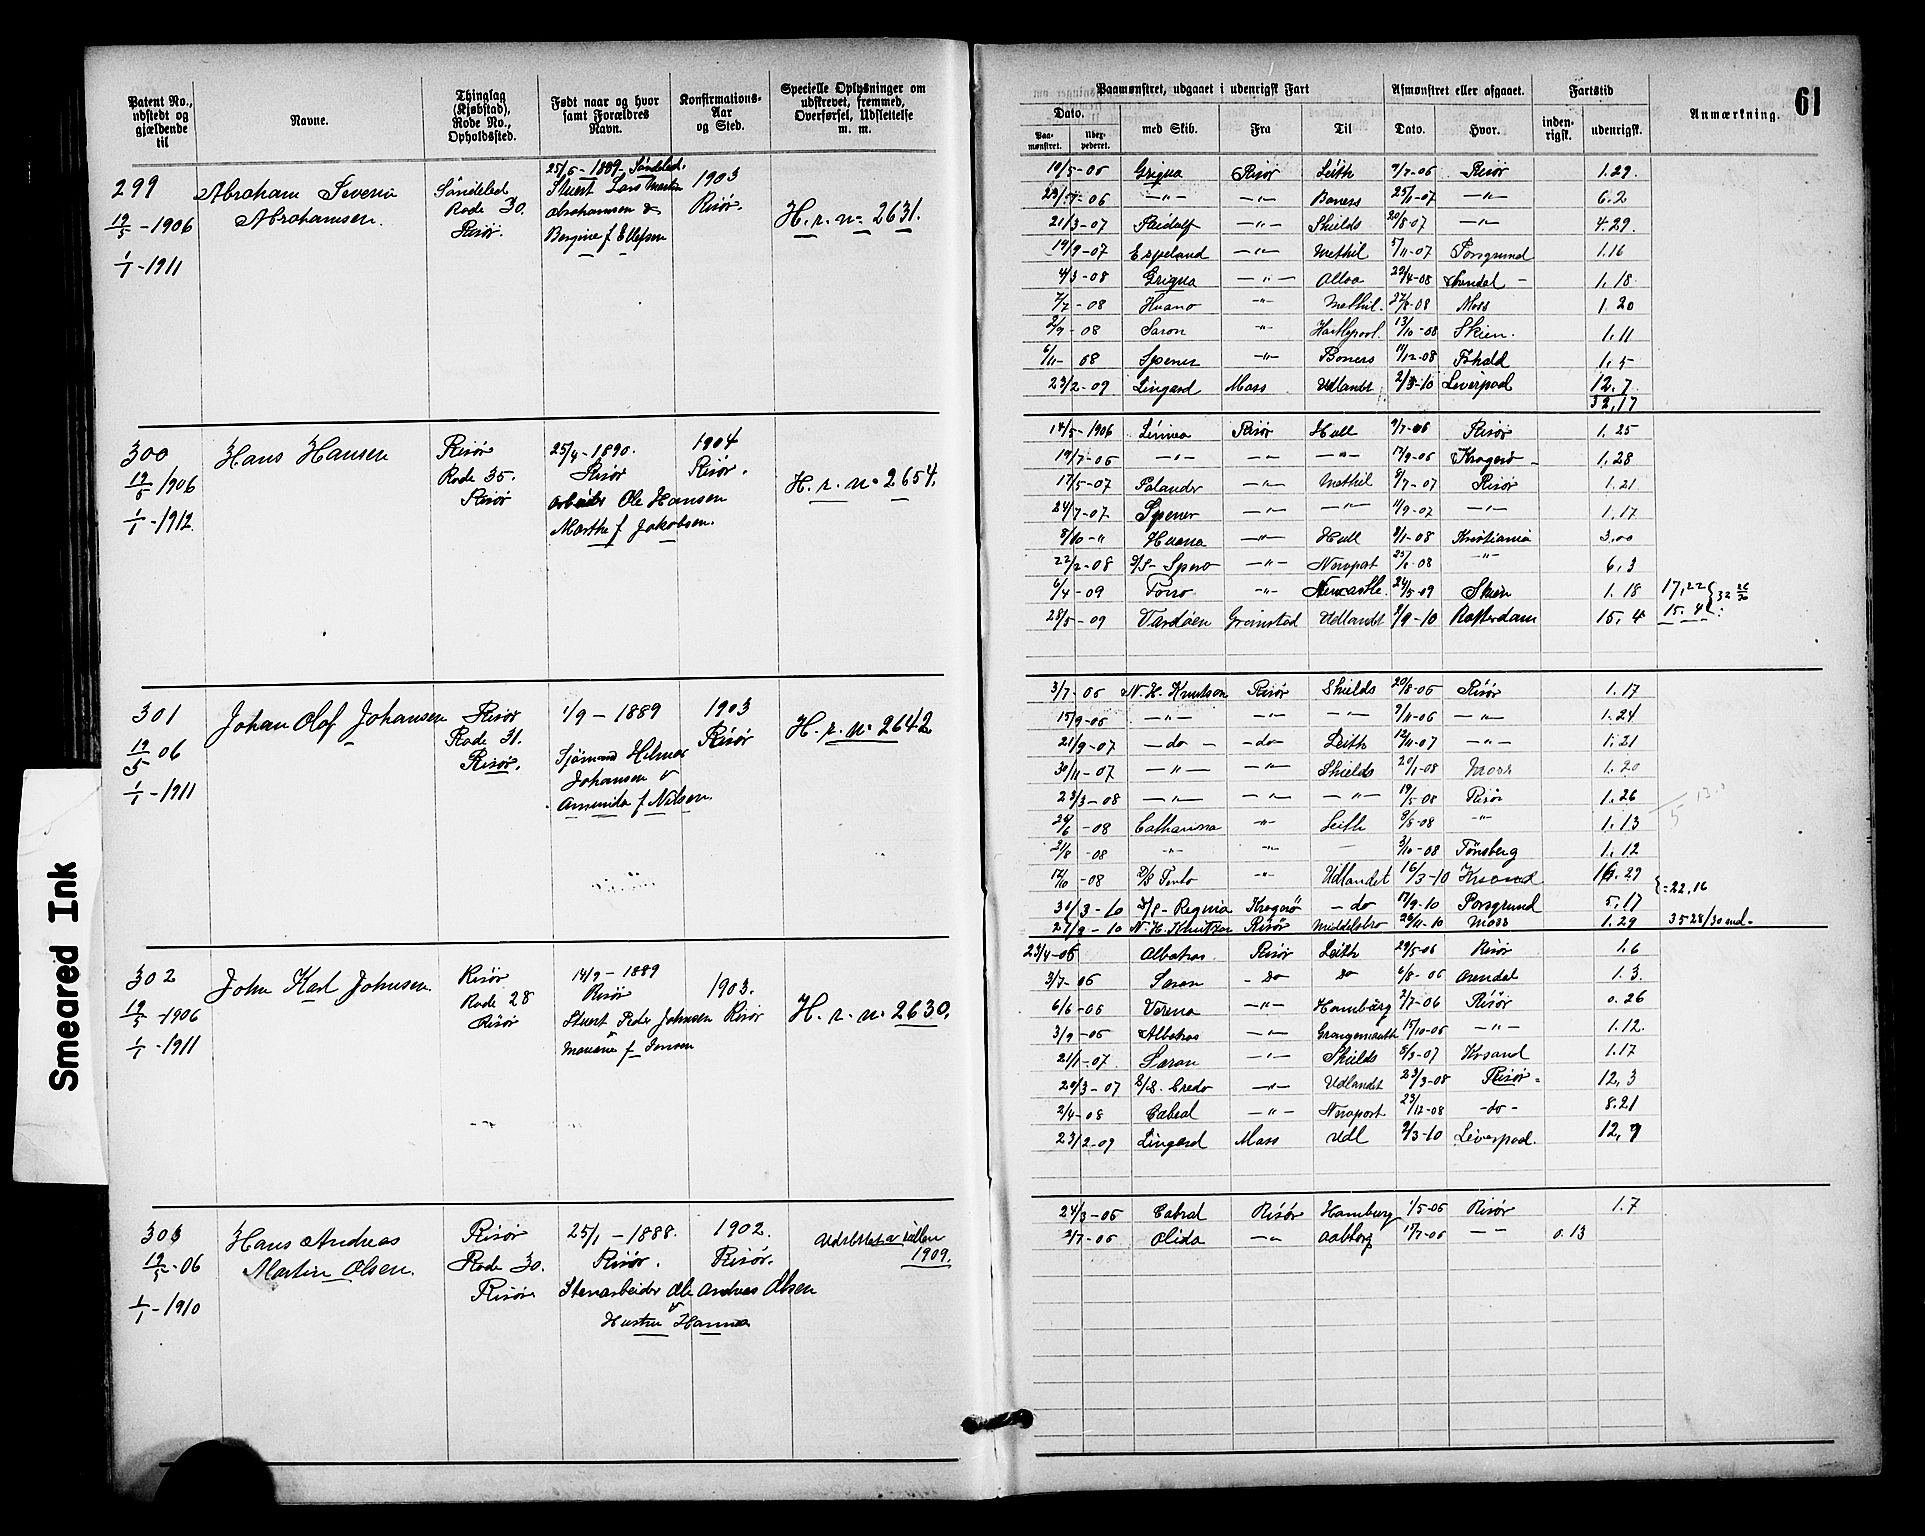 Smeared Ink
Patent No., udstedt og gjældende til
Navne.
Thinglag (Kjøbstad), Rode No., Opholdssted.
Født naar og hvor samt Forældres Navn.
Konfirmations-Aar og Sted.
Specielle Oplysninger om udskrevet, fremmed, Overførsel, Udslettelse m. m.
299
12/5 - 1906
1/1 - 1911
Abraham Severin
Abrahamsen.
Søndeled
Rode 30.
Risør.
25/6 - 1889 Søndeled.
Stuert Lars Martin
Abrahamsen &
Bergine f Ellefsen
1903
Risør.
H. r. n: 2631.
300
12/5 1906
1/1 - 1912.
Hans Hansen
Risør
Rode 35.
Risør
25/4 - 1890.
Risør
Arbeider Ole Hansen
Marthe f Jakobsen.
1904
Risør.
H. r. n: 2654.
301
12/5 06
1/1 - 1911
Johan Olaf Johansen
Risør
Rode 31.
Risør.
1/9 - 1889
Sjømand Hilmar
Johansen &
Amunda f Nilsen.
1903
Risør
H. r. n: 2642
302
12/5 - 1906
1/1 - 1911
John Karl Johnsen.
Risør
Rode 28
Risør
14/9 - 1889
Risør
Stuert Peder Johnsen
&
Mariane f Jensen
1903.
Risør
H. r. n: 2630.
303
12/5 - 06
1/1 - 1910
Hans Andreas
Martin Olsen.
Risør
Rode 30.
Risør
25/1 - 1888.
Risør.
Stenarbeider Ole Andreas Olsen
&
Hustru Hanna
1902.
Risør.
Udslettet av rullen
1909.
61
Paamønstret, udgaaet i udenrigsk Fart
Afmønstret eller afgaaet.
Fartstid
Anmærkning.
Dato.
Paa-mønstret.
Uber-pederet.
med Skib.
Fra
Til
Dato.
Hvor.
inden-rigsk.
udenrigsk.
10/5 - 06 Grigua Risør Leith 9/7 - 06 Risør 1.29.
29/7 - 06 -"- -"- Boness 25/1 - 07 -"- 6.2
21/3 - 07 Reidulf -"- Shields 20/8 07 -"- 4.29.
19/9 - 07 Espeland -"- Methil 5/11 - 07 Porsgrund 1.16
4/3 - 08 Grigua -"- Alloa 22/4 - 08 Arendal 1.18
7/7 - 08 Huano -"- Methil. 27/8 - 08 Moss 1.20
2/9 - 08 Saron -"- Hartlepool. 13/10 - 08 Skien. 1.11
6/11 - 08 Spener -"- Boness 11/12 - 08 Fshald 1.5
23/2 - 09 Lingard Moss Udlandt 2/3 - 10 Liverpool 12.7
32,17
14/5 - 1906 Linnea Risør Hull 9/7 - 06 Risør 1.25
19/7 - 06 -"- -"- -"- 17/9 - 06 Kragerø 1.28
17/5 - 07 Palander -"- Methil 8/7 - 07 Risør 1.21
24/7 - 07 Spener -"- -"- 11/9 - 07 -"- 1.17
8/10 - " Huana -"- Hull 9/1 - 08 Kristiania 3.00
22/2 - 08 D/S - Spero -"- Newport 25/8 - 08 " 6.3
6/4 - 09 Torso -"- Newcastle. 24/5 - 09 Skien 1.18 17,22
15.4 } 32 26/30
28/5 - 09 Vardøen Grimstad Udlandt 2/9 - 10 Rotterdam 15.4
3/7 - 06 N. H. Knutson Risør Shields 20/8 - 06 Risør 1.17
15/9 - 06 -"- -"- -"- 9/11 - 06 -"- 1.24
21/9 - 07 - do - - do - Leith 12/11 - 07 -"- 1.21
30/11 - 07 -"- -"- Shields 20/1 - 08 Moss 1.20
23/3 - 08 -"- -"- -"- 19/5 - 08 Risør 1.26
26/6 - 08 Catharina -"- Leith 8/8 - 08 -"- 1.13
21/8 - 08 -"- -"- 3/10 - 08 Tønsberg 1.12
12/10 - 08 Udlandet 16/3 - 10 16.29
} = 22,16
30/3 - 10 D/S - Regina Kragerø - do 17/9 - 10 Porsgrund 5.17
27/9 - 10 N. H. Knutson Risør Middelsbro 26/11 - 10 Moss 1.29 35 28/30 md -
23/4 - 06 Albatros Risør Leith 29/5 - 06 Risør 1.6
3/7 - 06 Saron - Do Do 6/8 - 06 Arendal 1.3.
6/6 - 06 Verena -"- Hamburg 2/7 - 06 Risør 0.26
3/9 - 06 Albatros -"- Grangemouth 15/10 - 06 -"- 1.12.
21/1 - 07. Saron -"- Shields 8/3 - 07 Krsand 1.17
20/3 - 07 D/S. Credo -"- Udlandet 23/3 - 08 Risør. 12.3
2/4 - 08 Cabral -"- Newport 23/12 - 08 - do - 8.21
23/2 - 09 Lingard Moss Udl 2/3 - 10 Liverpool. 12,7
24/3 - 06 Cabral Risør Hamburg 1/5 - 06 Risør 1.7
2/7 - 06 Olida -"- Aalborg 15/7 - 06 -"- 0.13